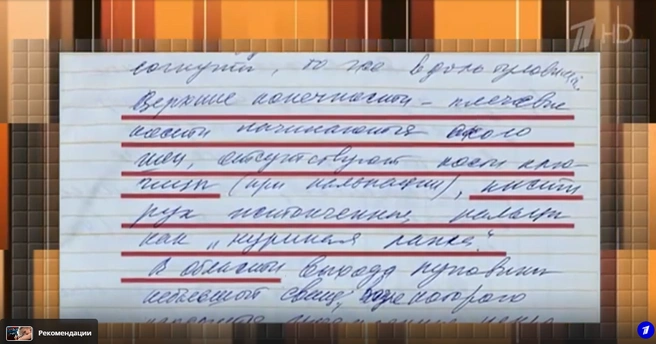 HD
согнуты, то же вдоль туловища.
Верхние конечности – плечевые
кости начинаются около
шеи, отсутствуют кости клю-
чицы (при пальпации), кисти
рук истонченная пальцы
как „куриная лапка."
В области выхода пуповины
небольшой свищ, которого
Рекомендации